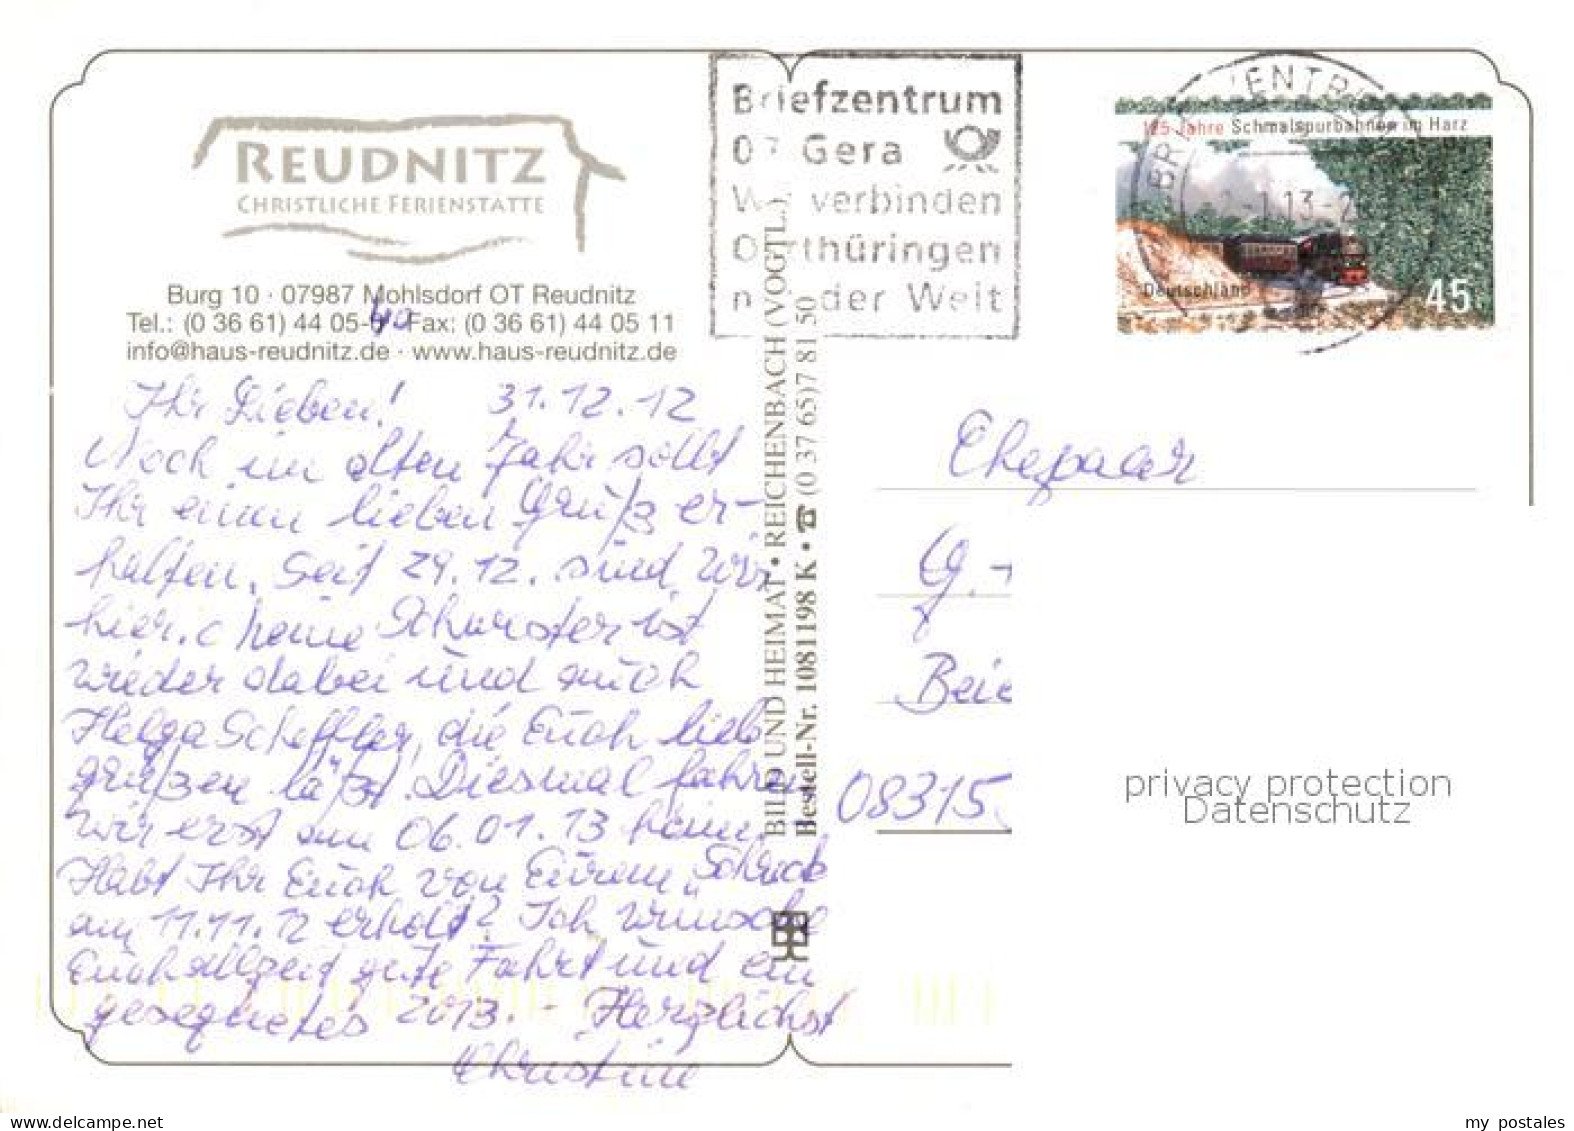 REUDNITZ
CHRISTLICHE FERIENSTÄTTE
Burg 10 · 07987 Mohlsdorf OT Reudnitz
Tel.: (0 36 61) 44 05-40 Fax: (0 36 61) 44 05 11
info@haus-reudnitz.de · www.haus-reudnitz.de
Ihr Lieben! 31.12.12
Noch im alten Jahr sollt
Ihr einen lieben Gruß er-
halten. Seit 29.12. sind wir
hier. Meine Schwester ist
wieder dabei und auch
Helga Scheffler, die Euch lieb
grüßen läßt. Diesmal fahren
wir erst am 06.01.13 heim.
Habt Ihr Euch von Eurem „Schreck
am 11.11.12 erholt? Ich wünsche
Euch allzeit gute Fahrt und ein
gesegnetes 2013. - Herzlichst
Christine
BILD UND HEIMAT • REICHENBACH (VOGTL.)
Bestell-Nr. 1081198 K • ☎ (0 37 65) 7 81 50
Briefzentrum
07 Gera
Wir verbinden
Ostthüringen
mit der Welt
BRIEFZENTRUM
-1.13-2
125 Jahre Schmalspurbahnen im Harz
Deutschland
45
Ehepaar
G.
Beie
08315
privacy protection
Datenschutz
my postales